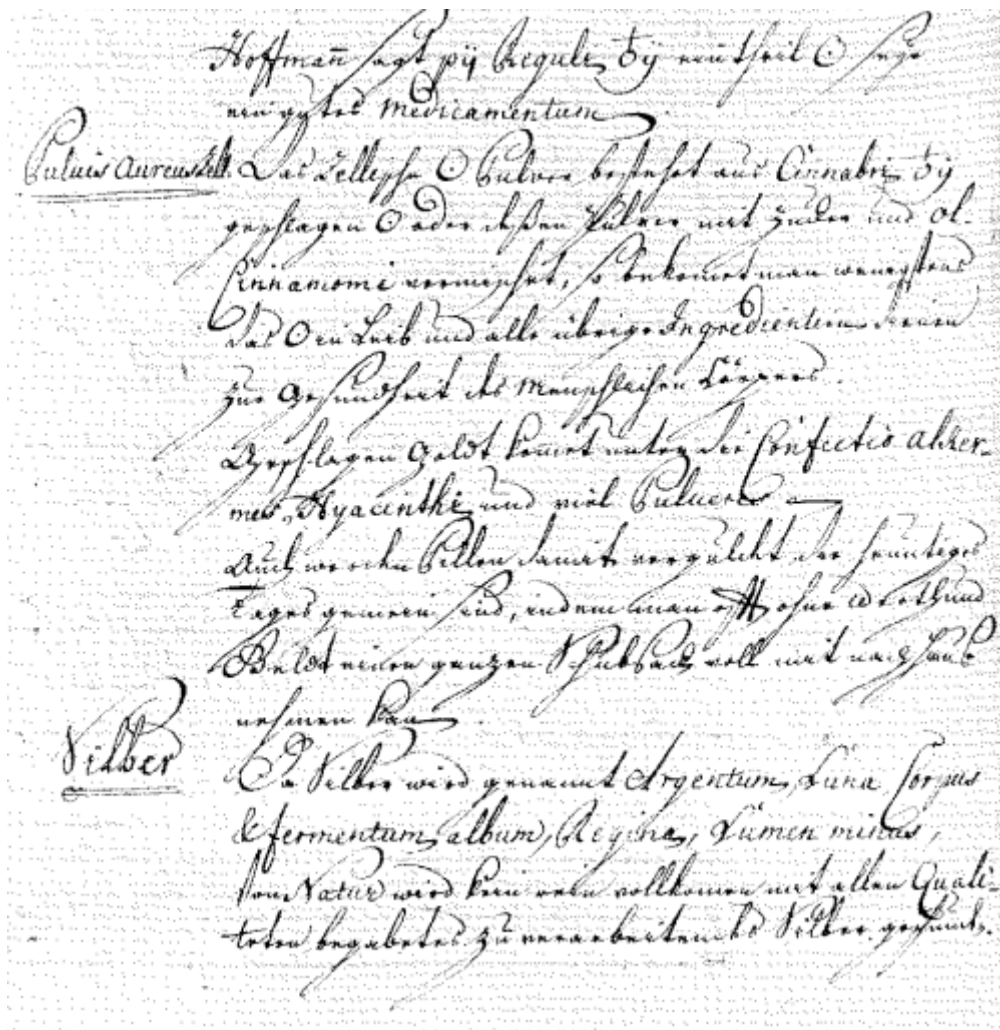 Hoffmañ sagt pij Regule ʒij ein theil ☉ seye
ein gutes Medicamentum
Puluis Aureus Zell. Das Zellische ☉ Pulver bestehet aus Cinnabri ʒij
geschlagen ☉ oder deßen Pulver mit Zucker und Ol.
Cinnamomi vermischet, so bekomet man wenigstens
das ☉ in Leib und alle übrige Ingredientien dienen
zur Gesundheit des Menschlichen Cörpers.
Geschlagen Goldt komet unter die Confectio alker-
mes, Hyacinthi und viel Pulueres
Auch werden Pillen damit vergüldet die heuntiges
Tages gemein sind, indem man oft ohne werth und
Geldt einen ganzen Schubsack voll mit nach haus
nehmen kan.
Silber
Da Silber wird genannt Argentum, Luna Corpus
& fermentum album, Regina, Lumen minus,
Von Natur wird kein rein vollkomen mit allen Quali-
teten begabetes zu verarbeitendes Silber gefunden.